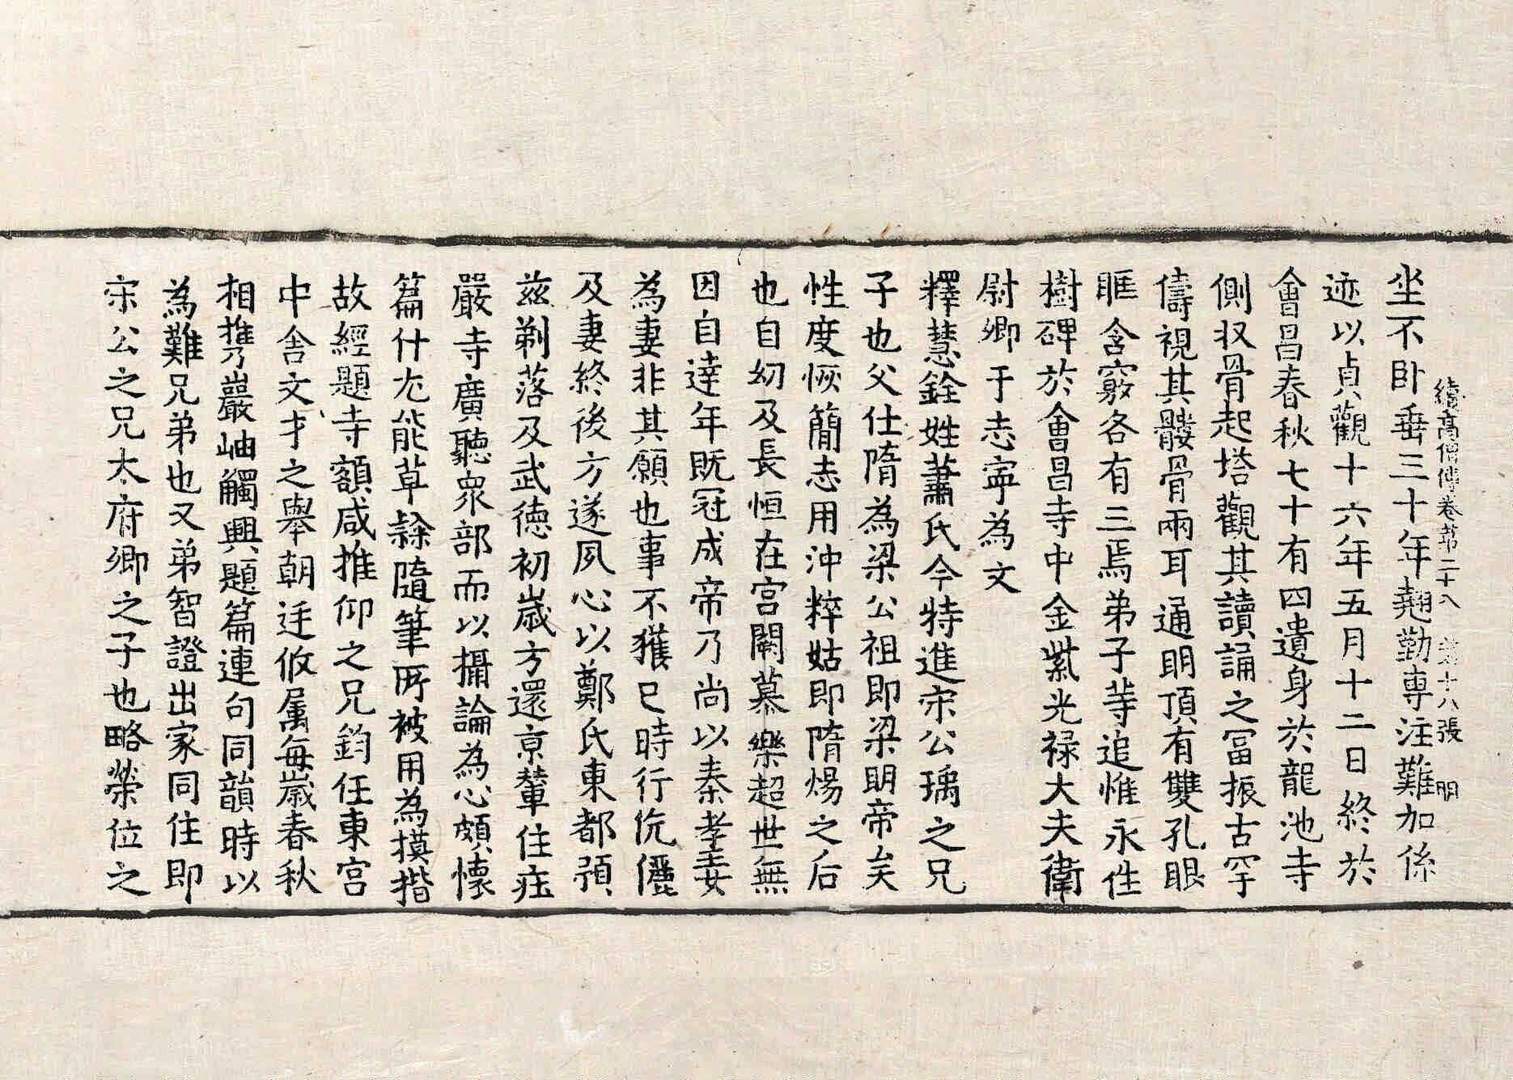 續高僧傳卷第二十八 第十八張 明
坐不卧垂三十年翹勤專注難加係
迹以貞觀十六年五月十二日終於
會昌春秋七十有四遺身於龍池寺
側収骨起塔觀其讀誦之冨振古罕
儔視其髏骨兩耳通明頂有雙孔眼
眶含竅各有三焉弟子等追惟永往
樹碑於會昌寺中金紫光禄大夫衛
尉卿于志寧為文
釋慧銓姓蕭氏今特進宋公瑀之兄
子也父仕隋為梁公祖即梁明帝矣
性度恢簡志用沖粹姑即隋煬之后
也自幼及長恒在宫闕慕樂超世無
因自達年既冠成帝乃尚以秦孝妻
為妻非其願也事不獲已時行伉儷
及妻終後方遂夙心以鄭氏東都預
兹剃落及武徳初歳方還京輦住莊
嚴寺廣聽衆部而以攝論為心頗懷
篇什尤能草隸隨筆所被用為摸揩
故經題寺額咸推仰之兄鈞任東宫
中舎文才之舉朝廷攸属毎歳春秋
相携乃巖岫觸興題篇連句同韻時以
為難兄弟也又弟智證出家同住即
宋公之兄太府卿之子也略榮位之